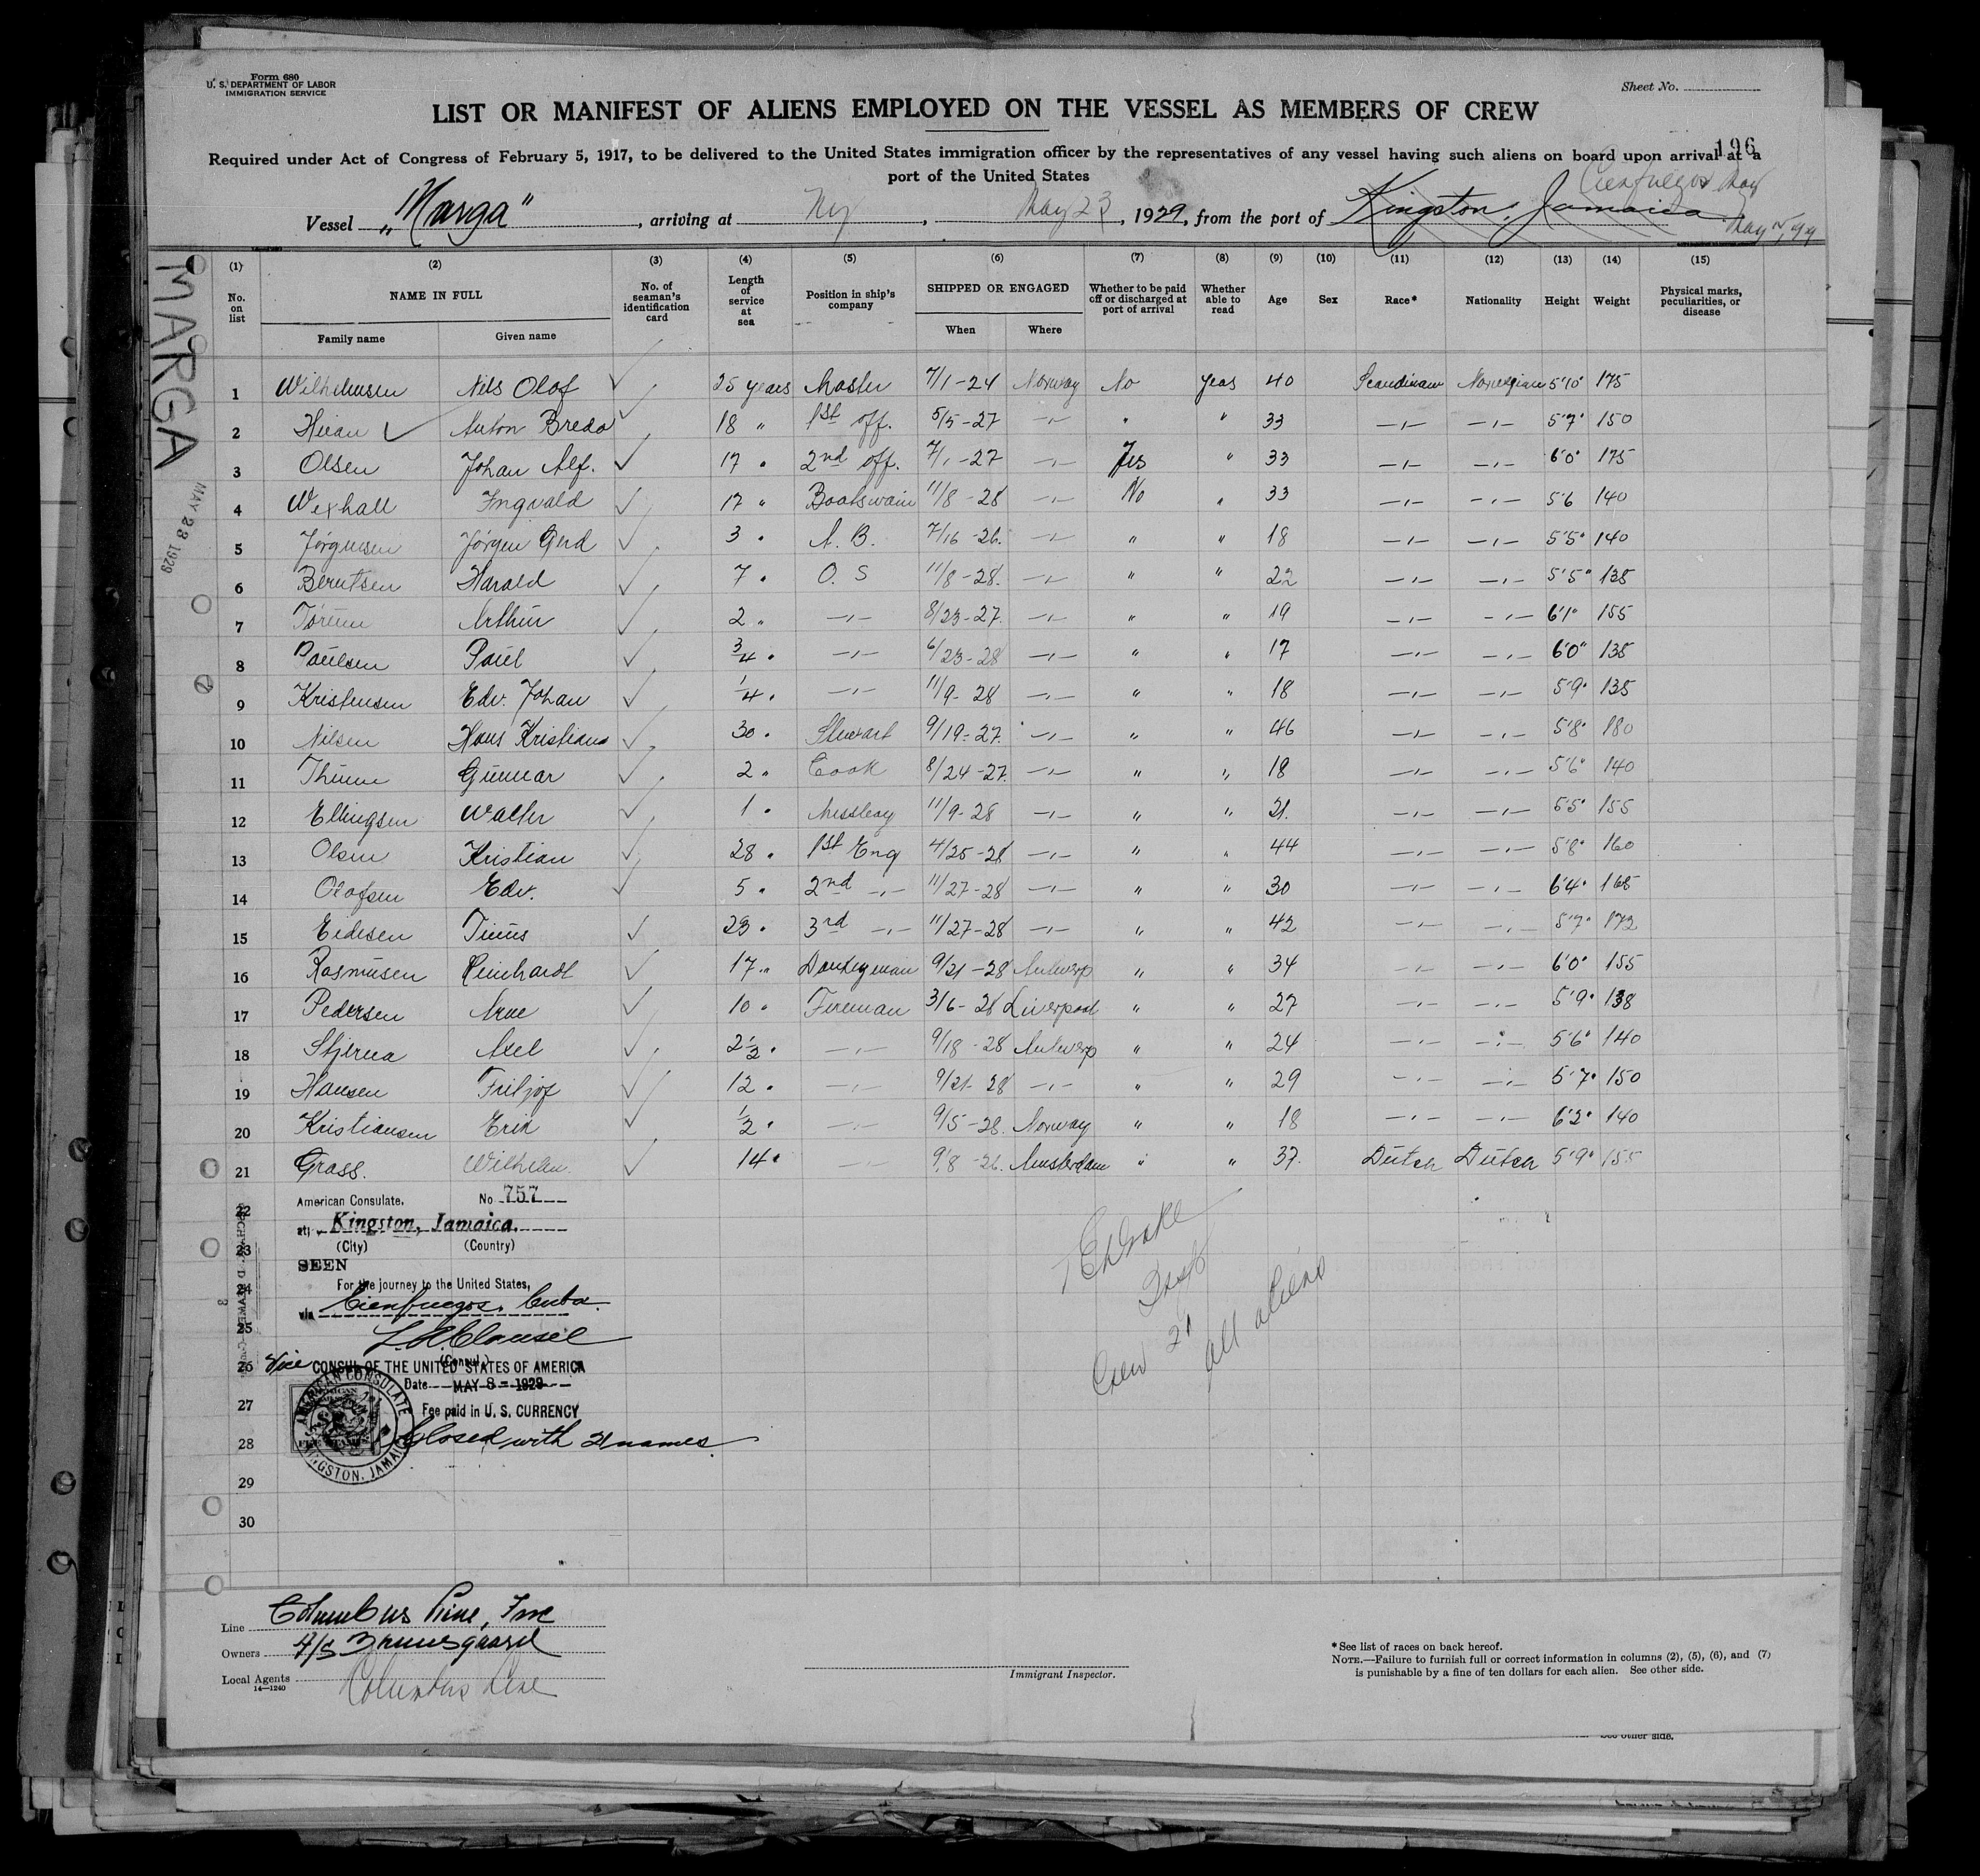 Form 680
U. S. DEPARTMENT OF LABOR
IMMIGRATION SERVICE
Sheet No.
LIST OR MANIFEST OF ALIENS EMPLOYED ON THE VESSEL AS MEMBERS OF CREW
196
Required under Act of Congress of February 5, 1917, to be delivered to the United States immigration officer by the representatives of any vessel having such aliens on board upon arrival at a
port of the United States
Cienfuegos
Vessel "Marga", arriving at Ny, May 23, 1929, from the port of Kingston, Jamaica
MARGA
MAY 23 1929
(1) (2) (3) (4) (5) (6) (7) (8) (9) (10) (11) (12) (13) (14) (15)
No. on list NAME IN FULL No. of seaman's identification card Length of service at sea Position in ship's company SHIPPED OR ENGAGED Whether to be paid off or discharged at port of arrival Whether able to read Age Sex Race* Nationality Height Weight Physical marks, peculiarities, or disease
Family name Given name When Where
1 Wilhelmsen Nils Olof ✓ 25 years Master 7/1-24 Norway No Yeas 40 Scandinav Norwegian 5'10" 175
2 ✓ Anton Breda 18 " 1st off. 5/5-27 -"- " " 33 -"- -"- 5'7" 150
3 Olsen Johan Alf. ✓ 17 " 2nd off. 7/1-27 -"- Yes " 33 -"- -"- 6'0" 175
4 Wexhall Ingvald ✓ 17 " Boatswain 11/8-28 -"- No " 33 -"- -"- 5'6 140
5 Jørgensen Jørgen Gerd ✓ 3 " A. B. 7/16-26. -"- " " 18 -"- -"- 5'5" 140
6 Berntsen Harald ✓ 7 " O. S 11/8-28. -"- " " 22 -"- -"- 5'5" 135
7 Arthur ✓ 2 " -"- 8/23-27. -"- " " 19 -"- -"- 6'1" 155
8 Paulsen Paul ✓ 3/4 " -"- 6/23-28 -"- " " 17 -"- -"- 6'0" 135
9 Kristensen Edv. Johan ✓ 1/4 " -"- 11/9-28 -"- " " 18 -"- -"- 5'9" 135
10 Nilsen Hans Kristian ✓ 30 " Stewart 9/19-27. -"- " " 46 -"- -"- 5'8" 180
11 Gunnar ✓ 2 " Cook 8/24-27. -"- " " 18 -"- -"- 5'6" 140
12 Ellingsen Walter ✓ 1 " Messboy 11/9-28 -"- " " 21. -"- -"- 5'5" 155
13 Olsen Kristian ✓ 28 " 1st Eng 4/25-28 -"- " " 44 -"- -"- 5'8" 160
14 Olofsen Edv. ✓ 5 " 2nd -"- 11/27-28 -"- " " 30 -"- -"- 6'4" 165
15 Eidesen Tinus ✓ 23 " 3rd -"- 11/27-28 -"- " " 42 -"- -"- 5'7" 172
16 Rasmusen Reinhardt ✓ 17 " Donkeyman 9/21-28 Antwerp " " 34 -"- -"- 6'0" 155
17 Pedersen Arne ✓ 10 " Fireman 3/6-28 Liverpool " " 27 -"- -"- 5'9" 138
18 Stjerna Axel ✓ 2 1/2 " -"- 9/18-28 Antwerp " " 24 -"- -"- 5'6" 140
19 Hansen Fritjof ✓ 12 " -"- 9/21-28 -"- " " 29 -"- -"- 5'7" 150
20 Kristiansen Erik ✓ 1/2 " -"- 9/5-28. Norway " " 18 -"- -"- 6'2" 140
21 Grass. Wilhelm. ✓ 14 " -"- 9/8-26. Amsterdam " " 37. Dutch Dutch 5'9" 155
22
23
24
25
26
27
28
29
30
American Consulate. No 757
at Kingston, Jamaica.
(City) (Country)
SEEN
For the journey to the United States,
via Cienfuegos, Cuba.
L. A. Clausel
(Consul.)
Vice CONSUL OF THE UNITED STATES OF AMERICA
Date MAY 8 - 1929
Fee paid in U. S. CURRENCY
Closed with 21 names
AMERICAN CONSULATE
KINGSTON, JAMAICA
Insp
Crew 21
all aliens
Line Columbus Line, Inc
Owners A/S
Local Agents Columbus Line
14—1240
Immigrant Inspector.
*See list of races on back hereof.
NOTE.—Failure to furnish full or correct information in columns (2), (5), (6), and (7)
is punishable by a fine of ten dollars for each alien. See other side.
See other side.